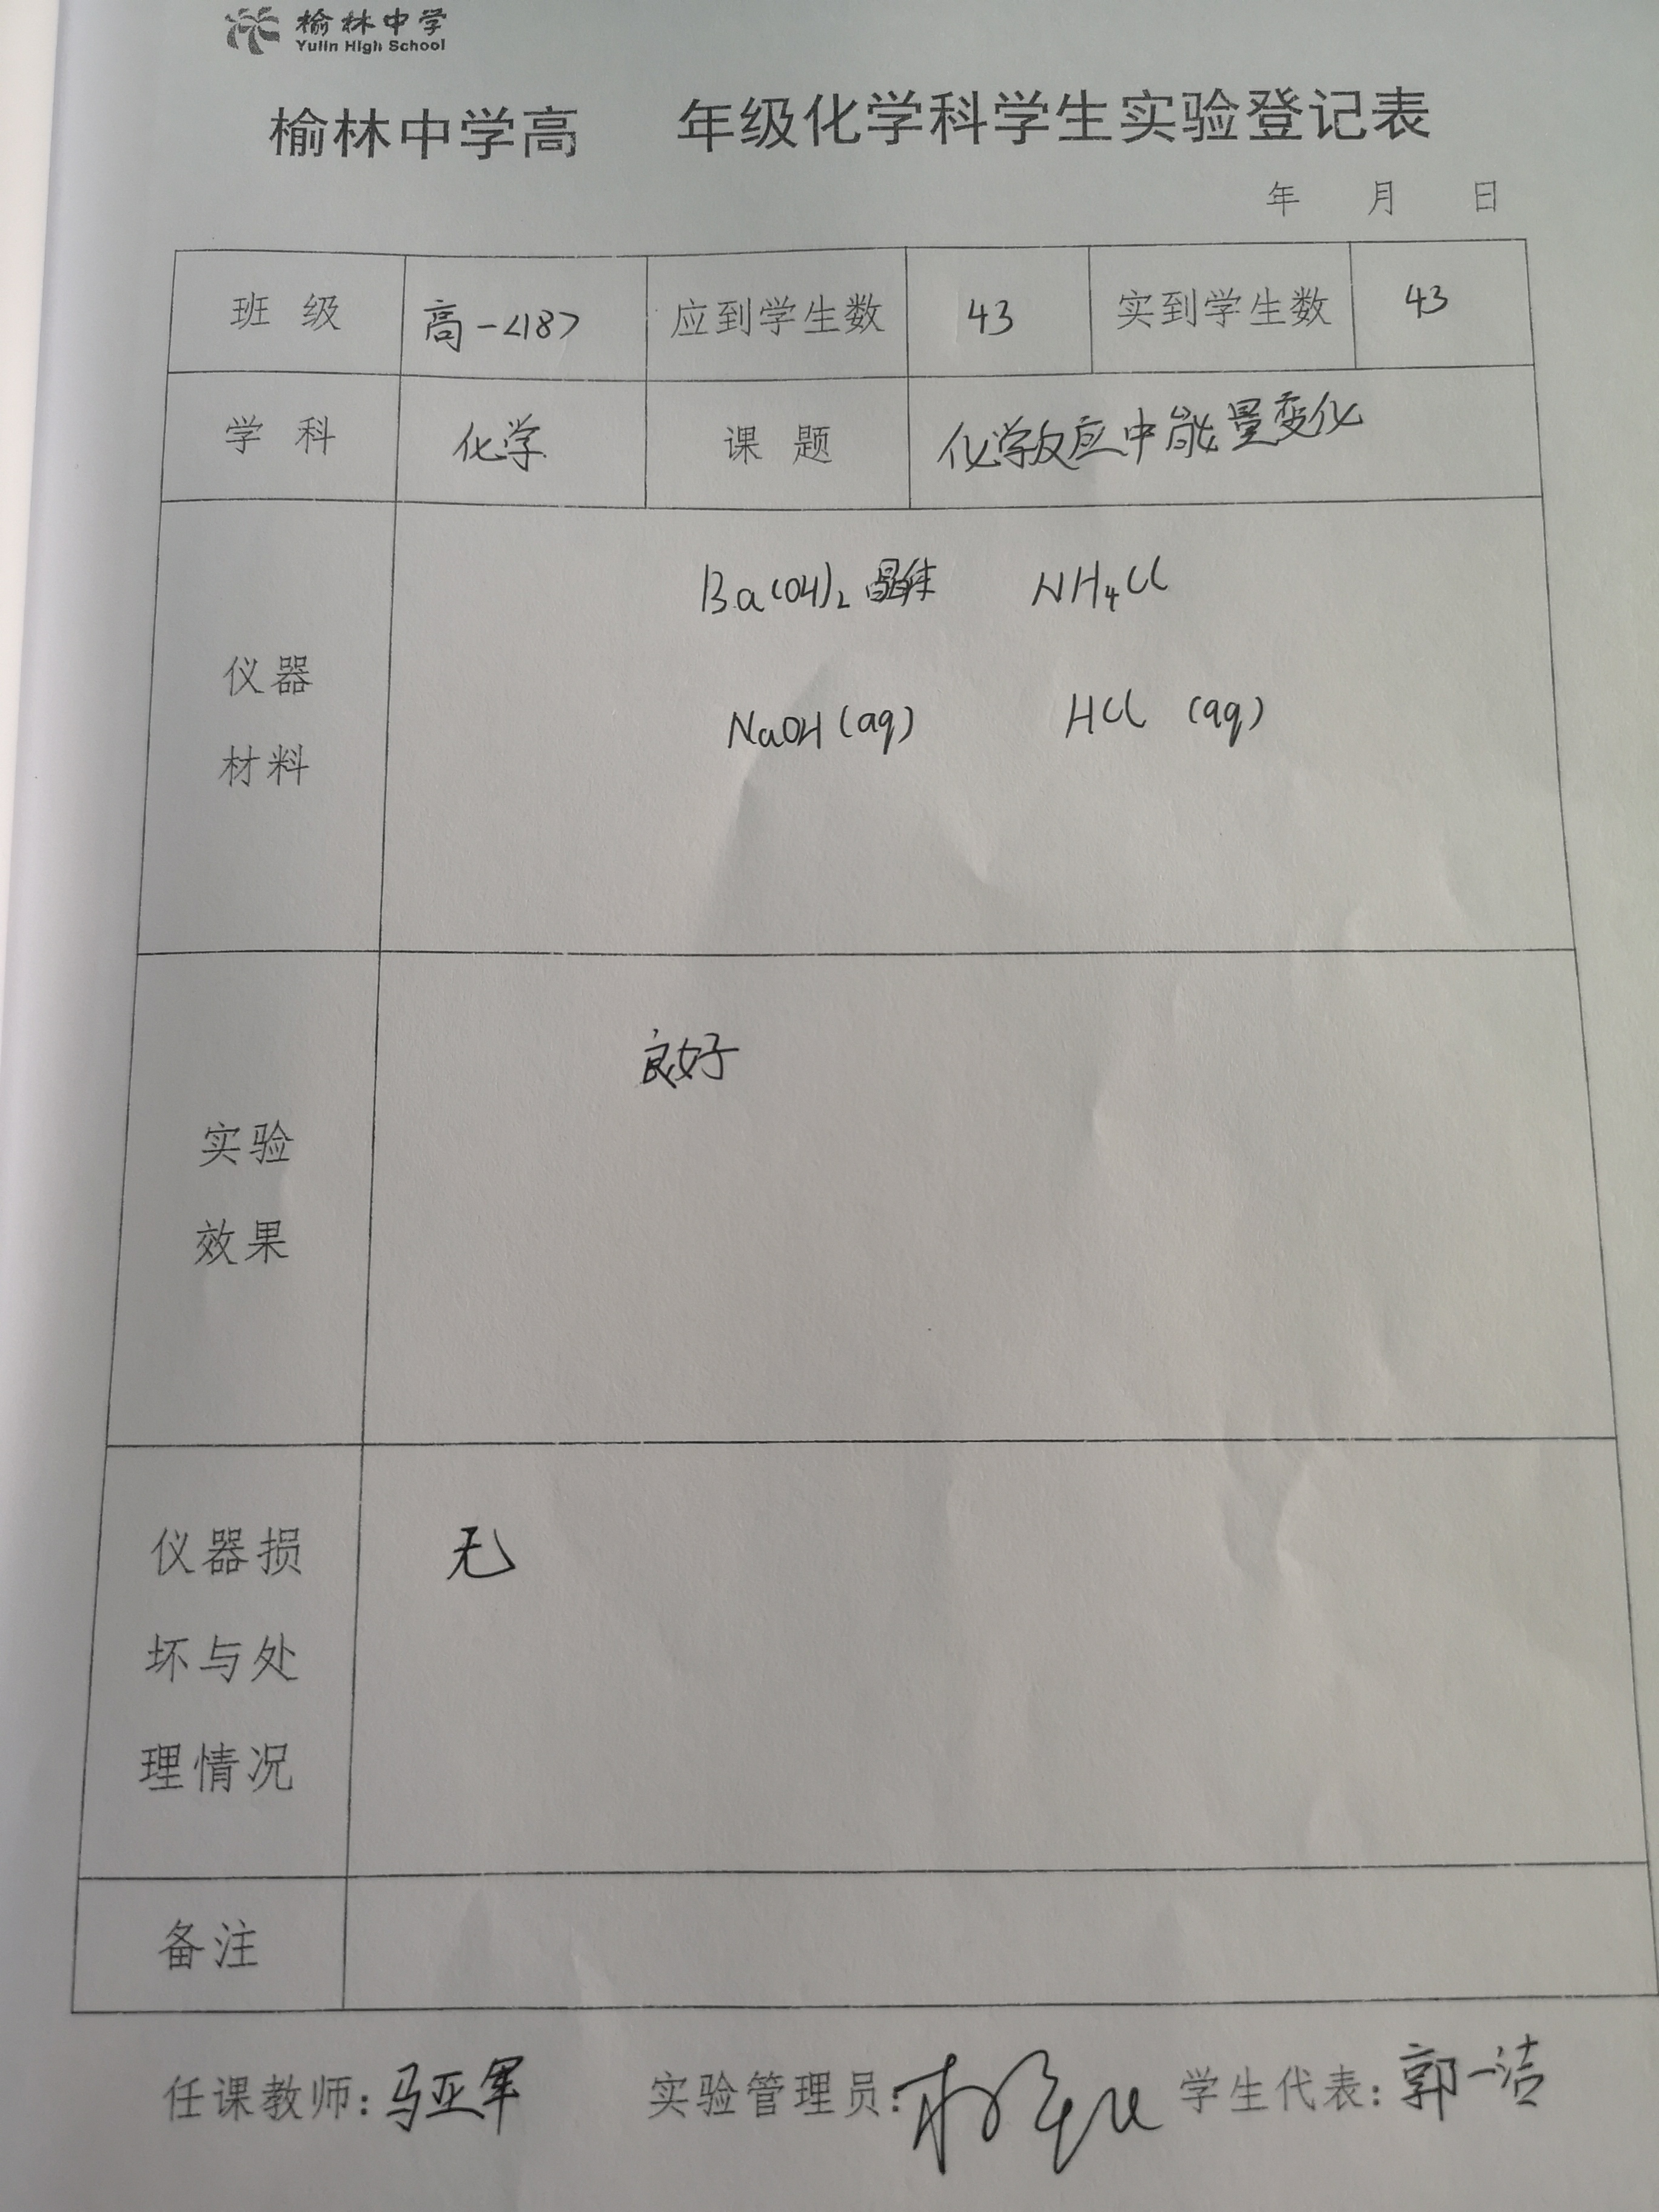 榆林中学
Yulin High School
榆林中学高 年级化学科学生实验登记表
年 月 日
班 级 高一<18> 应到学生数 43 实到学生数 43
学 科 化学 课 题 化学反应中能量变化
仪器
材料
Ba(OH)₂ 晶体 NH₄Cl
NaOH (aq) HCl (aq)
实验
效果
良好
仪器损
坏与处
理情况
无
备注
任课教师: 马亚军 实验管理员: 学生代表: 郭一洁